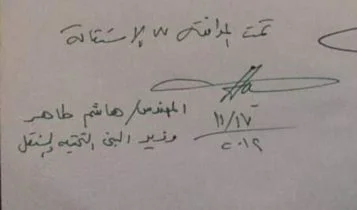 تمت الموافقة على الإستقالة
المهندس/هاشم طاهر
١١/١٧
وزير البنى التحتيه المستقل
٢٠١٢